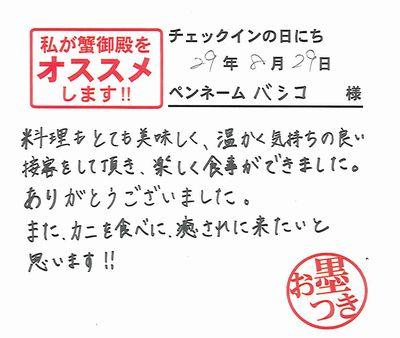 私が蟹御殿を
オススメ
します!!
チェックインの日にち
29年8月29日
ペンネーム バシコ 様
料理もとても美味しく、温かく気持ちの良い
接客をして頂き、楽しく食事ができました。
ありがとうございました。
また、カニを食べに、癒されに来たいと
思います!!
お墨つき